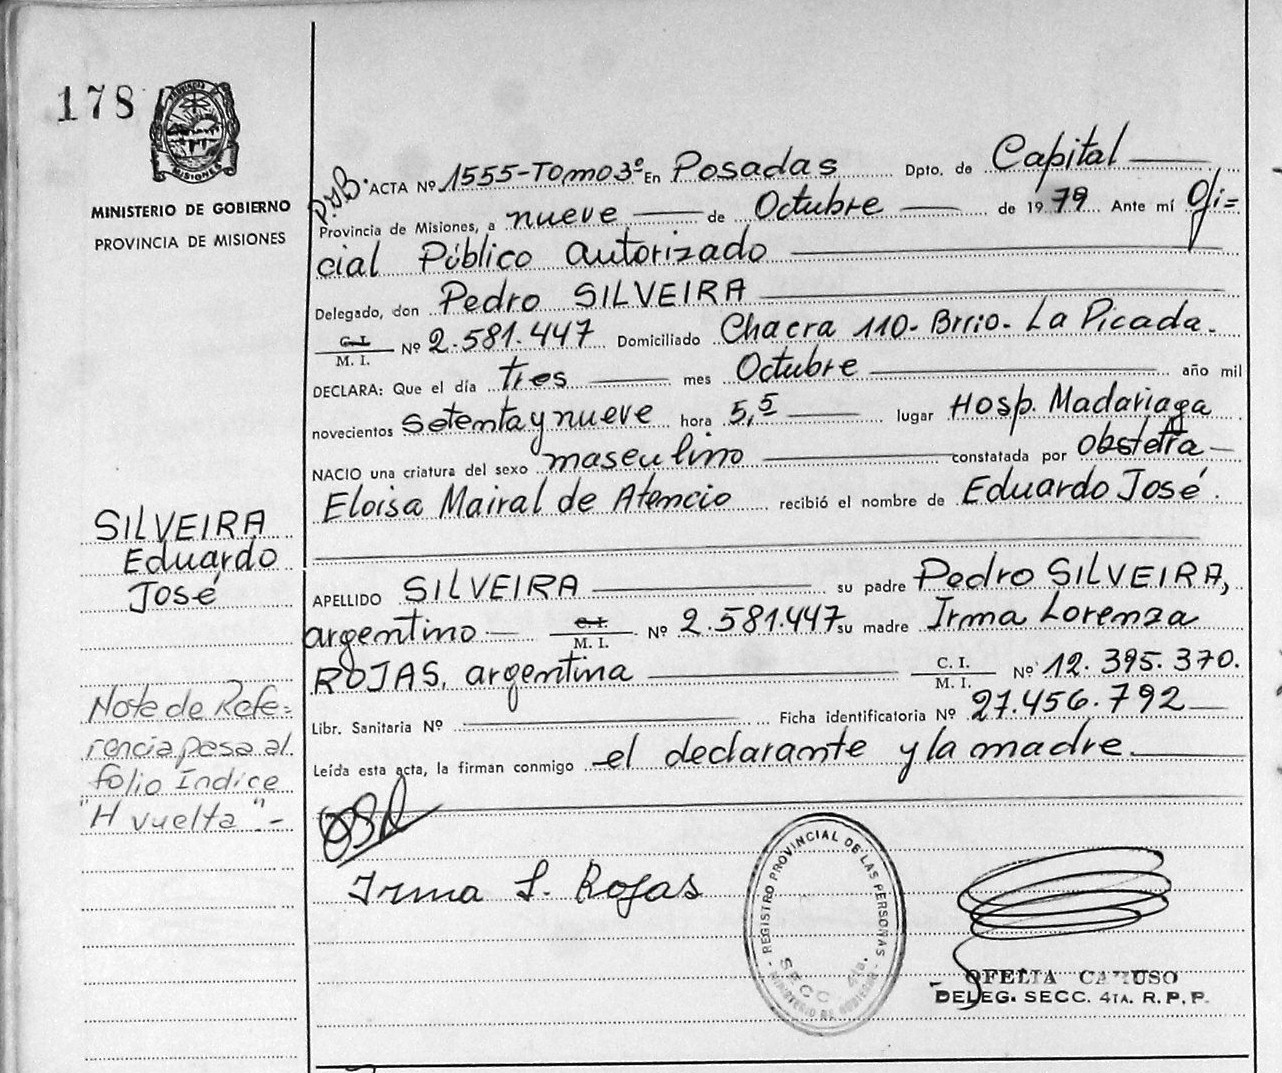 178
PROVINCIA DE
MISIONES
MINISTERIO DE GOBIERNO
PROVINCIA DE MISIONES
ACTA Nº 1555-Tomo 3º En Posadas Dpto. de Capital
Provincia de Misiones, a nueve de Octubre de 1979 Ante mí Ofi=
cial Público autorizado
Delegado, don Pedro SILVEIRA
C.I. / M. I. Nº 2.581.447 Domiciliado Chacra 110- Brrio- La Picada.
DECLARA: Que el día tres mes Octubre año mil
novecientos setenta y nueve hora 5,5 lugar Hosp. Madariaga
NACIO una criatura del sexo masculino constatada por obstetra
Eloisa Mairal de Atencio recibió el nombre de Eduardo José.
APELLIDO SILVEIRA su padre Pedro SILVEIRA,
argentino C.I. / M. I. Nº 2.581.447 su madre Irma Lorenza
ROJAS, argentina C. I. / M. I. Nº 12.395.370.
Libr. Sanitaria Nº Ficha identificatoria Nº 27.456.792
Leída esta acta, la firman conmigo el declarante y la madre.
SILVEIRA
Eduardo
José
Nota de Refe=
rencia pasa al
folio Indice
"H vuelta".-
Irma L. Rojas
REGISTRO PROVINCIAL DE LAS PERSONAS
SECC. 4ta.
MINISTERIO DE GOBIERNO
OFELIA CARUSO
DELEG. SECC. 4TA. R. P. P.